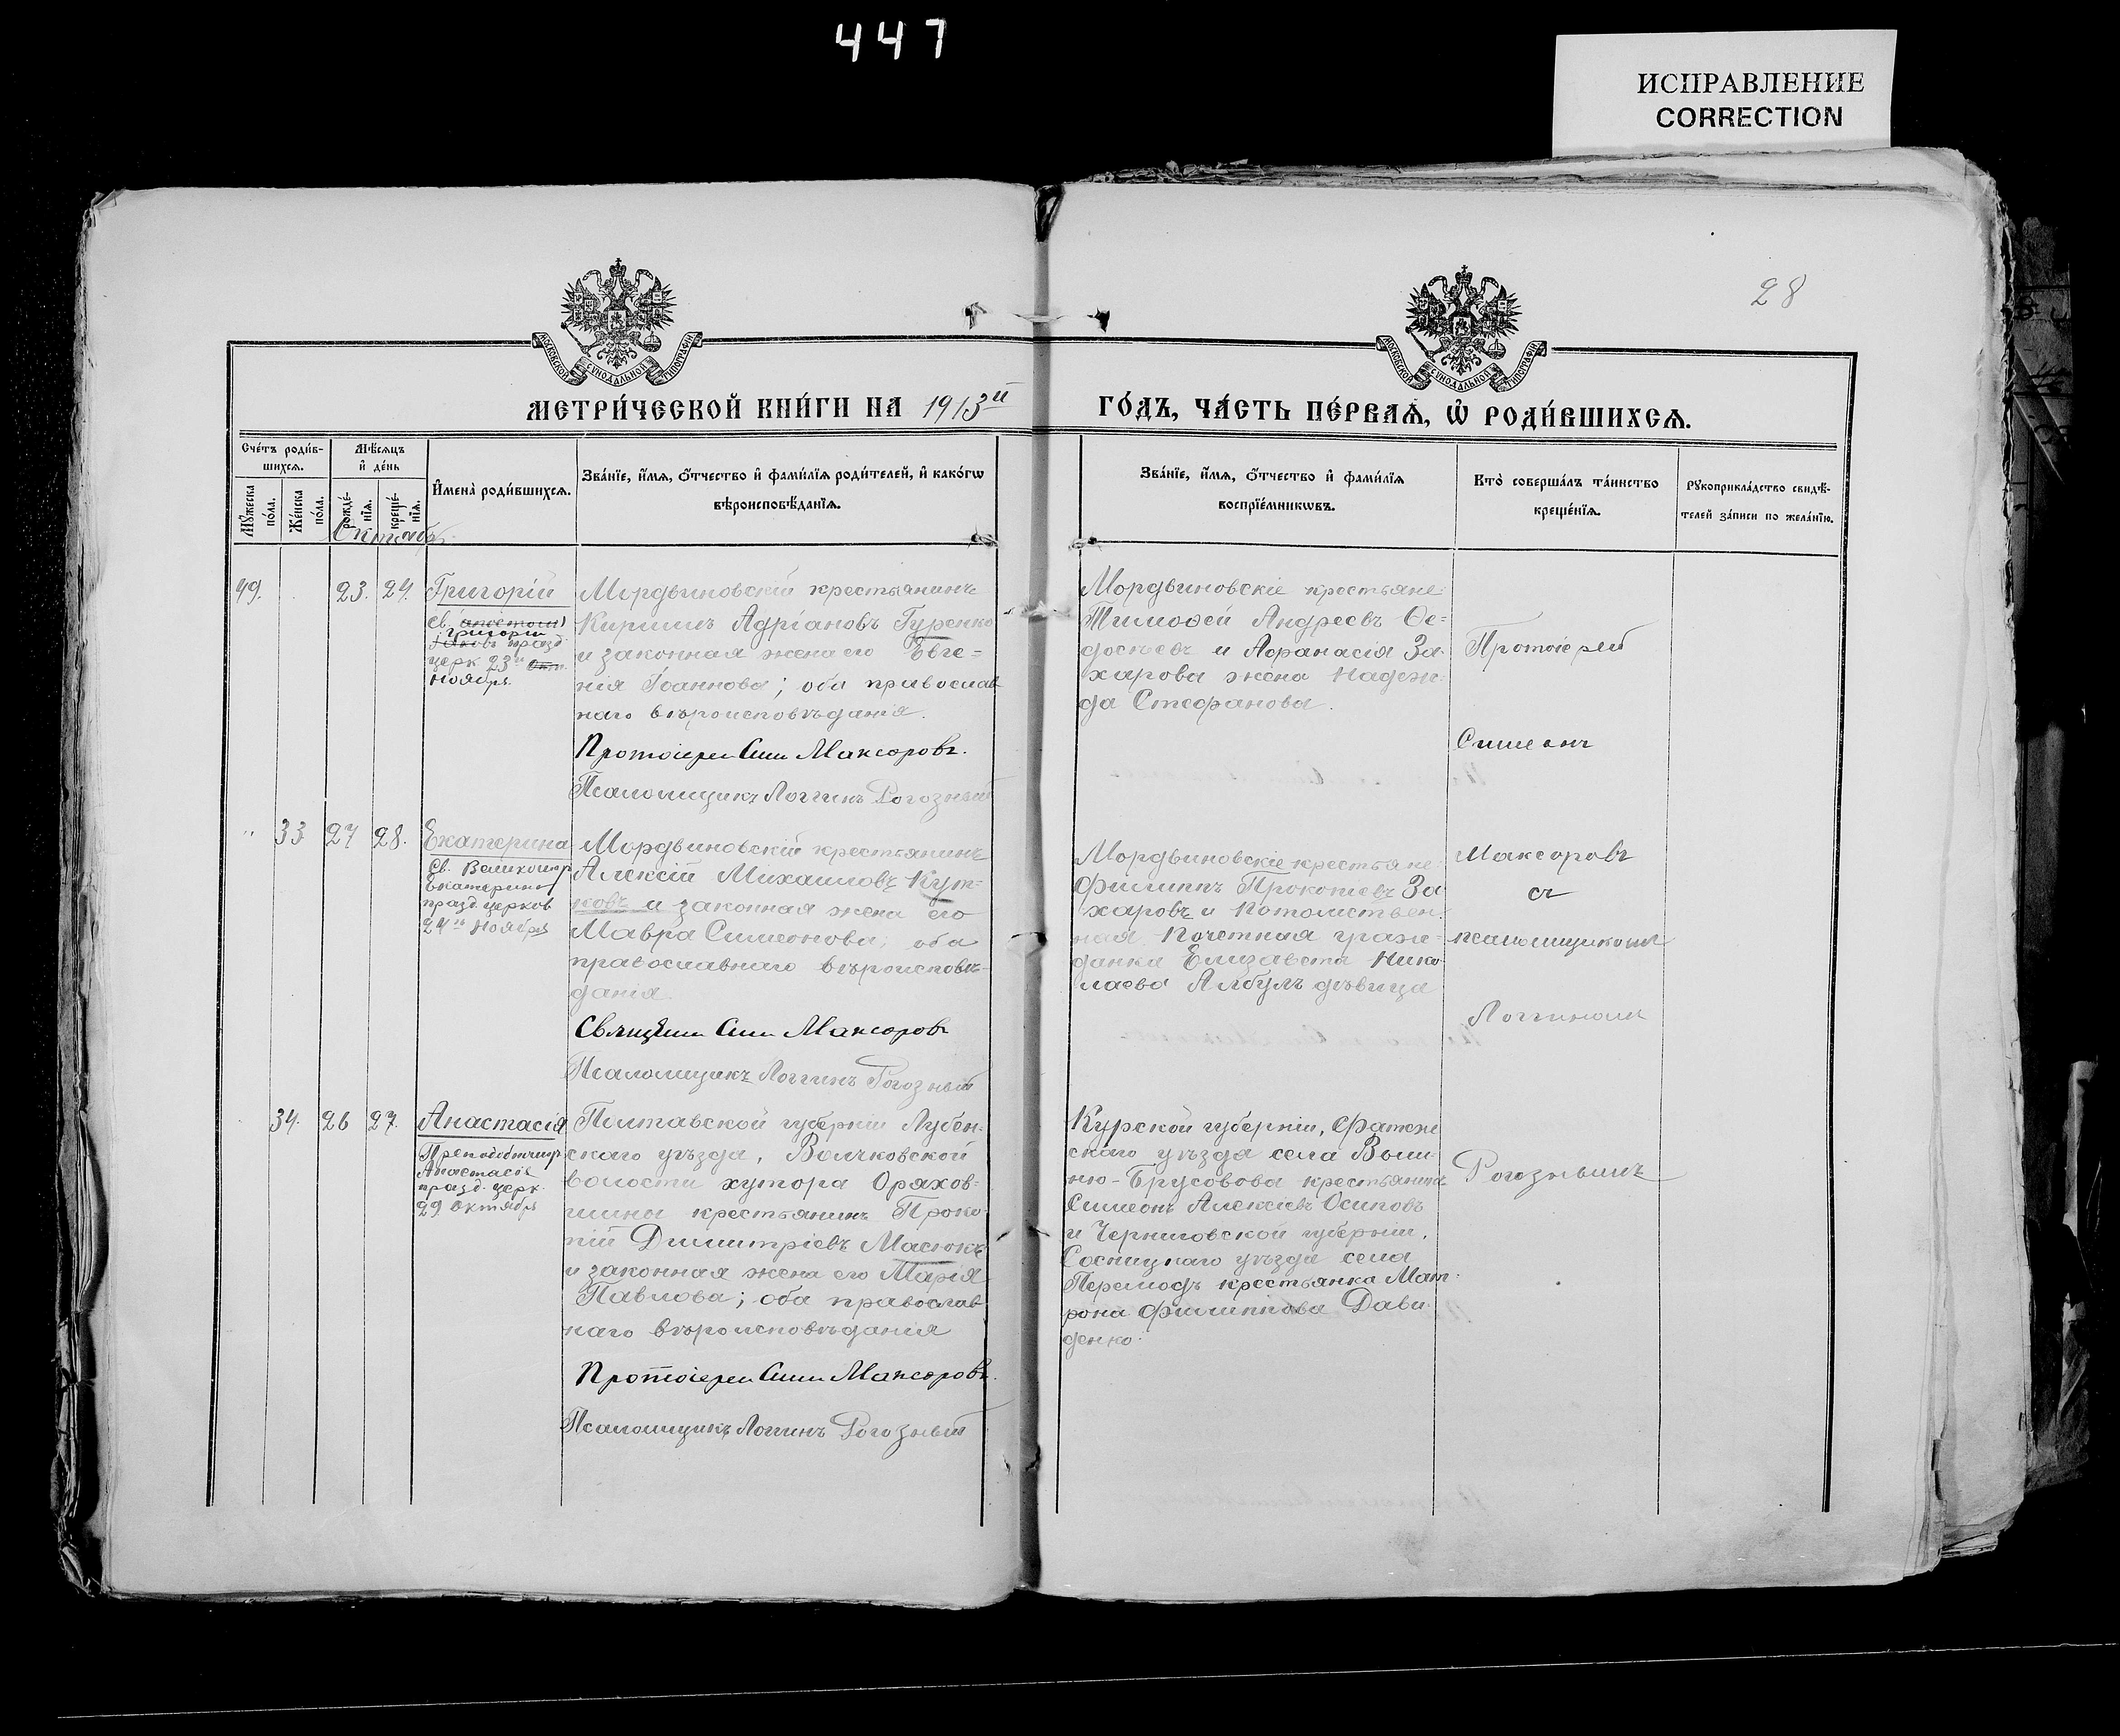 447
ИСПРАВЛЕНИЕ
CORRECTION
28
МОСКОВСКОЙ СУНОДАЛЬНОЙ ТИПОГРАФІИ
МОСКОВСКОЙ СУНОДАЛЬНОЙ ТИПОГРАФІИ
МЕТРИ́ЧЕСКОЙ КНИ́ГИ НА 1913й ГО́ДЪ, ЧА́СТЬ ПЕ́РВАѦ, Ѽ РОДИ́ВШИХСѦ.
Сче́тъ роди́в-
шихсѧ.
Мѣ́сѧцъ
и҆ де́нь
Мꙋ́жеска
по́ла.
Же́нска
по́ла.
рожде́-
нїѧ.
креще́-
нїѧ.
И҆мена̀ роди́вшихсѧ.
Зва́нїе, и҆́мѧ, ѻ҆́тчество и҆ фами́лїѧ роди́телей, и҆ како́гѡ
вѣроисповѣ́данїѧ.
Зва́нїе, и҆́мѧ, ѻ҆́тчество и҆ фами́лїѧ
воспрїе́мникѡвъ.
Кто̀ соверша́лъ та́инство
креще́нїѧ.
Рꙋкоприкла́дство свидѣ́-
телей за́писи по жела́нїю.
Октябрь
49.
23.
24.
Григорій
св. апостола
Григорія
Іакова празд.
церк 23го окт.
ноября.
Мордвиновскій крестьянинъ
Кириллъ Адріановъ Гуренко
и законная жена его Евге=
нія Іоаннова; оба православ
наго вѣроисповѣданія.
Протоіерей Сим Максоровъ.
Псаломщикъ Логгинъ Рогозный
Мордвиновскіе крестьяне:
Тимоѳей Андреевъ Ѳе=
досѣевъ и Аѳанасія За-
харова жена Надеж-
да Стефанова.
Протоіерей
Симеонъ
"
33
27
28.
Екатерина
Св. Великомр
Екатерины
празд. церков
24го ноября
Мордвиновскій крестьянинъ
Алексій Михаиловъ Кут=
ковъ и законная жена его
Мавра Симеонова; оба
православнаго вѣроисповѣ-
данія.
Священ Сим Максоровъ
Псаломщикъ Логгинъ Рогозный
Мордвиновскіе крестьяне:
Филиппъ Прокопіевъ За
харовъ и Потомствен-
ная Почетная граж-
данка Елизавета Нико
лаева Албулъ дѣвица
Максоровъ
съ
псаломщикомъ
Логгиномъ
34.
26
27.
Анастасія
Преподобномр
Анастасіи
празд. церк.
29 октября
Полтавской губерніи Лубен-
скаго уѣзда, Волчковской
волости хутора Оряхов-
щины крестьянинъ Проко-
пій Димитріевъ Масюкъ
и законная жена его Марія
Павлова; оба православ
наго вѣроисповѣданія
Протоіерей Сим Максоровъ.
Псаломщикъ Логгинъ Рогозный
Курской губерніи, Фатеж
скаго уѣзда села Выш-
ню-Брусовова крестьянинъ
Симеонъ Алексіевъ Осиповъ
и Черниговской губерніи,
Сосницкаго уѣзда села
Перелюдъ крестьянка Мат-
рона Филиппова Дави-
денко.
Рогознымъ